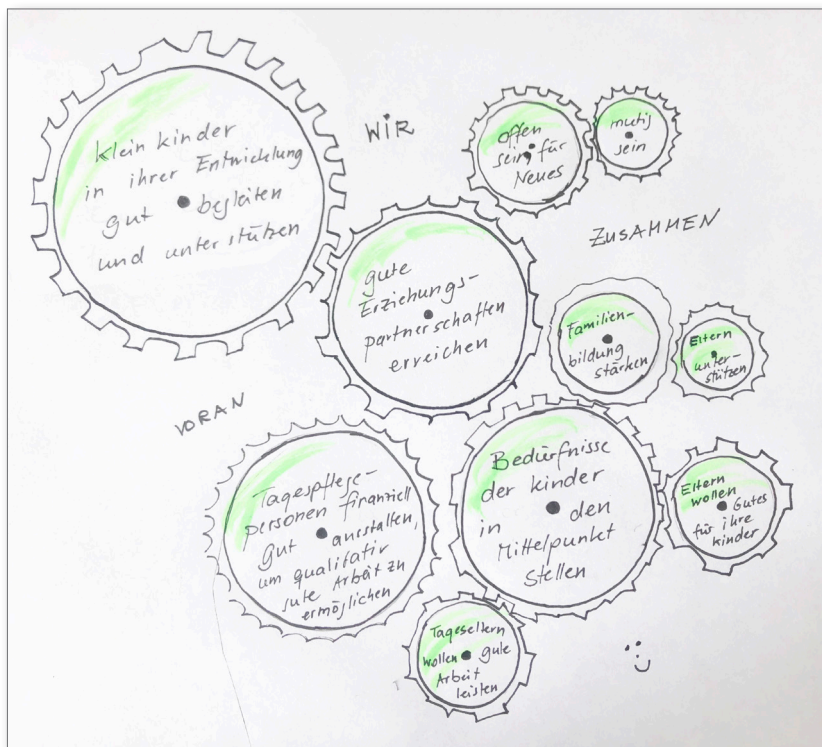 Kleinkinder
in ihrer Entwicklung
gut begleiten
und unterstützen
WIR
Offen
sein für
Neues
mutig
sein
ZUSAMMEN
gute
Erziehungs-
partnerschaften
erreichen
Familien-
bildung
stärken
Eltern
unter-
stützen
VORAN
Tagespflege-
personen finanziell
gut ausstatten,
um qualitativ
gute Arbeit zu
ermöglichen
Bedürfnisse
der Kinder
in den
Mittelpunkt
stellen
Eltern
wollen
Gutes
für ihre
Kinder
Tageseltern
wollen gute
Arbeit
leisten